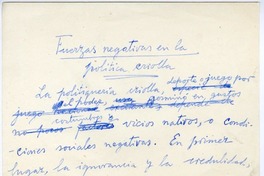 Fuerzas negativas en la
política criolla
La politiquería criolla, deporte o juego por
el poder, germinó en gestos
vicios nativos, o condi-
ciones sociales negativas. En primer
lugar, la ignorancia y la credulidad,